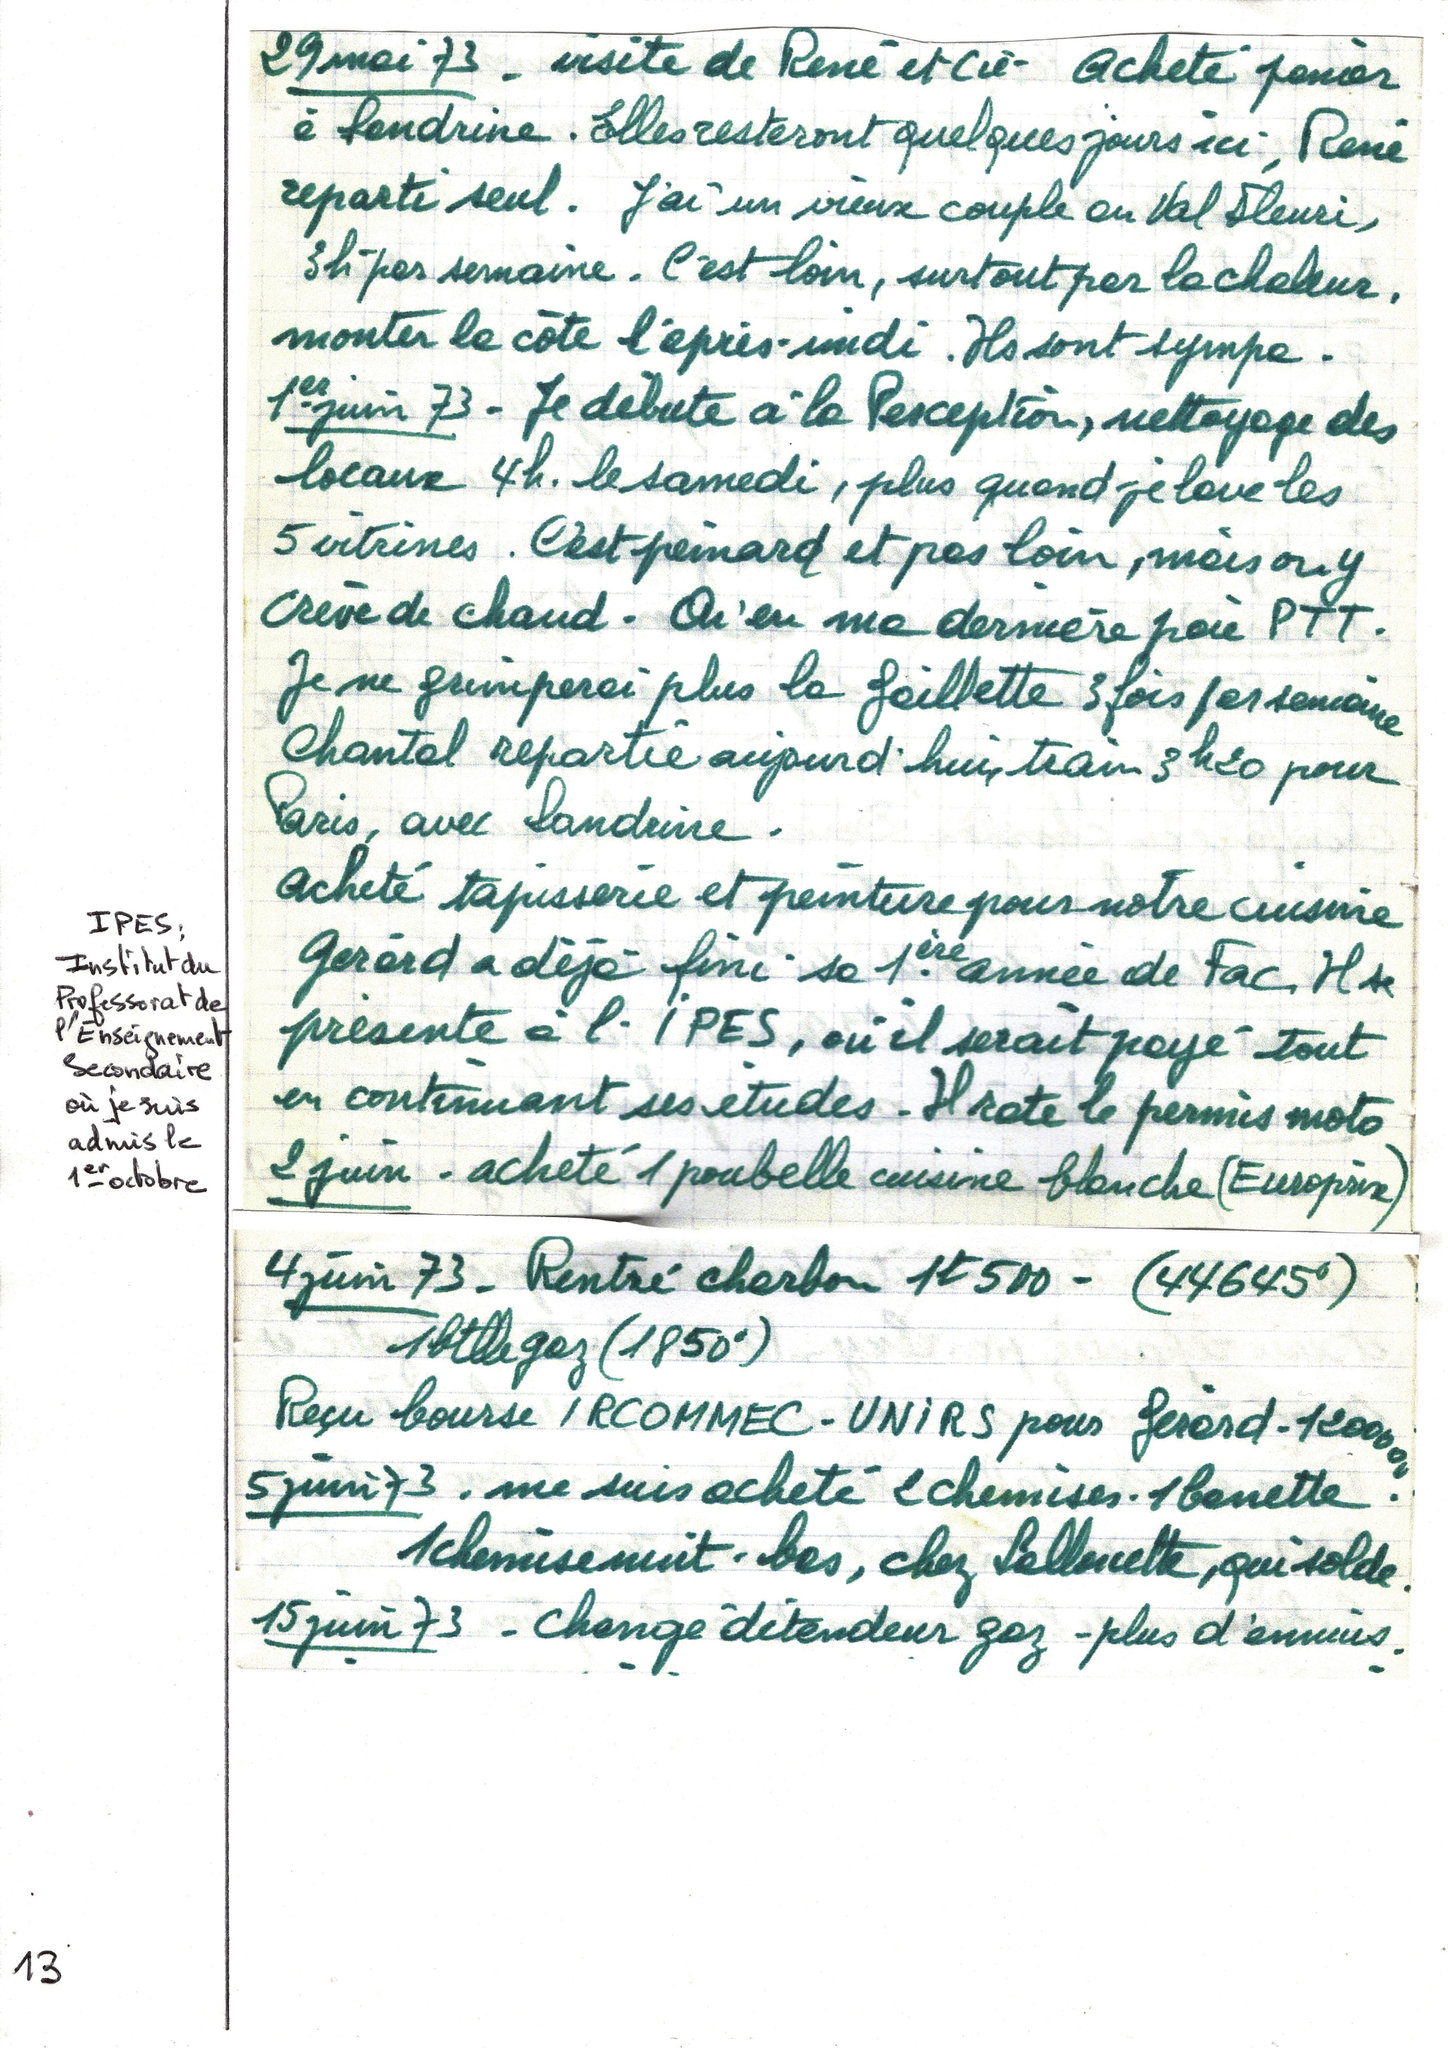 29 mai 73 - visite de René et Cie - Acheté panier
à Sandrine. Elles resteront quelques jours ici, René
reparti seul. J'ai un vieux couple au Val Fleuri,
3h par semaine. C'est loin, surtout par la chaleur,
monter la côte l'après-midi. Ils sont sympa.
1er juin 73 - Je débute à la Perception, nettoyage des
locaux 4h. le samedi, plus quand je lave les
5 vitrines. C'est peinard et pas loin, mais on y
crève de chaud. Ai eu ma dernière paie PTT.
Je ne grimperai plus la Gaillette 3 fois par semaine
Chantal repartie aujourd'hui, train 3h20 pour
Paris, avec Sandrine.
Acheté tapisserie et peinture pour notre cuisine
Gérard a déjà fini sa 1ère année de Fac. Il se
présente à l'IPES, où il serait payé tout
en continuant ses études - Il rate le permis moto
2 juin - acheté 1 poubelle cuisine blanche (Europrix)
IPES;
Institut du
Professorat de
l'Enseignement
Secondaire
où je suis
admis le
1er octobre
4 juin 73 - Rentré charbon 1t500 - (44645°)
1 btlle gaz (1850°)
Reçu bourse IRCOMMEC-UNIRS pour Gérard - 120000
5 juin 73. me suis acheté 2 chemises. 1 banette.
1 chemise nuit. bas, chez Lallouette, qui solde.
15 juin 73 - changé détendeur gaz - plus d'ennuis.
13